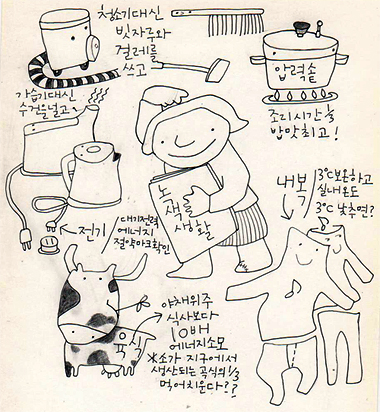 청소기대신
빗자루와
걸레를
쓰고
압력솥
조리시간↓
밥맛최고!
가습기대신
수건을널고
녹
색을
생활
내복
3℃보온하고
실내온도
3℃낮추면?
전기
대기전력
에너지
절약마크확인
육식
야채위주
식사보다
10배
에너지소모
※소가 지구에서
생산되는 곡식의 1/3
먹어치운다??